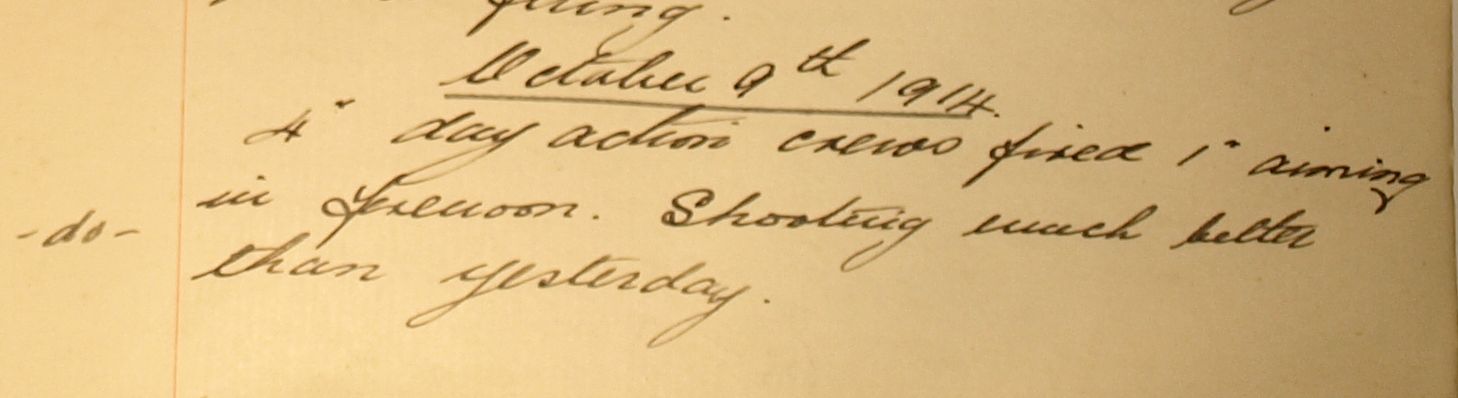 firing.
October 9th 1914.
4" day action crews fired 1" aiming
in forenoon. Shooting much better
-do-
than yesterday.